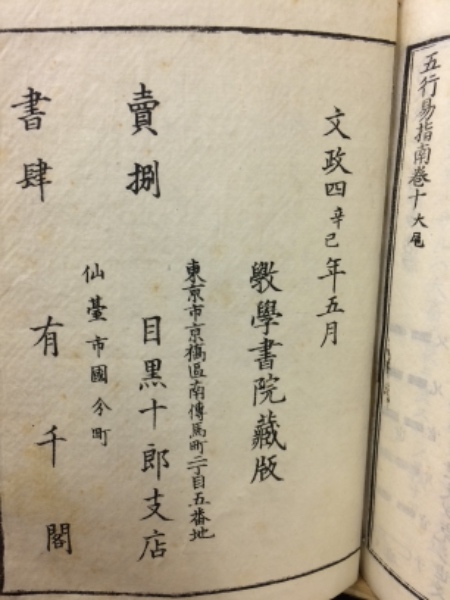 五行易指南卷十大尾
文政四辛巳年五月
斅學書院藏版
東京市京橋區南傳馬町二丁目五番地
賣捌 目黒十郎支店
仙臺市國分町
書肆 有千閣